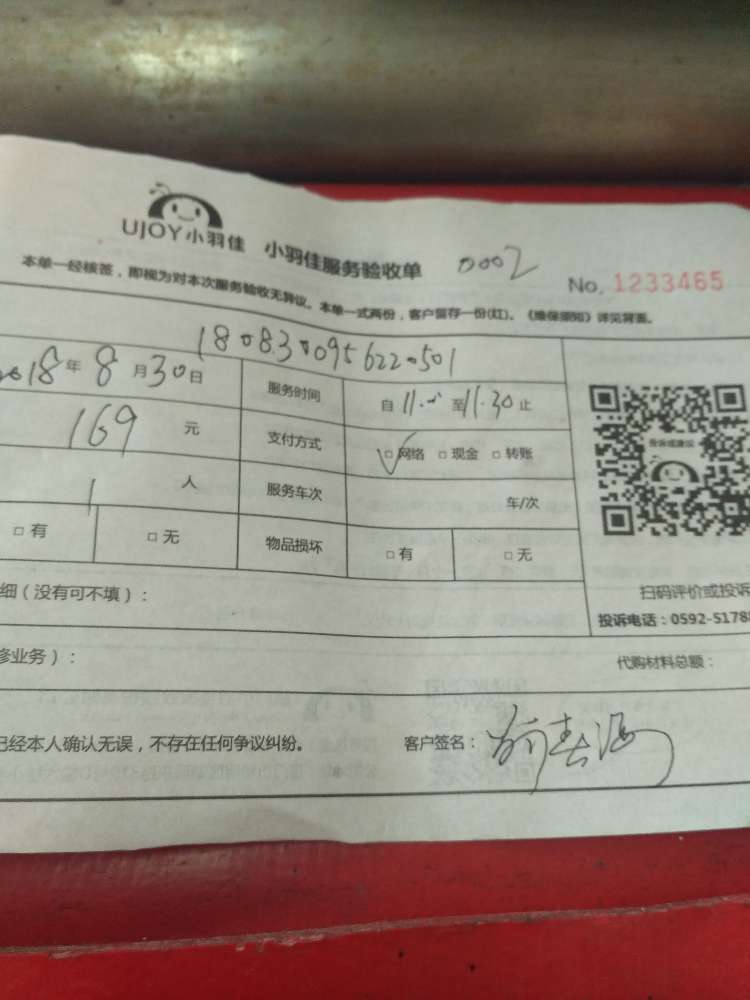 UJOY小羽佳 小羽佳服务验收单 0002
No. 1233465
本单一经核签，即视为对本次服务验收无异议。本单一式两份，客户留存一份(红)。《维保须知》详见背面。
18083009562250 1
2018年8月30日 服务时间 自11. 至11.30止
169元 支付方式 ☑网络 □现金 □转账
1人 服务车次 车/次
□有 □无 物品损坏 □有 □无
投诉或建议
细（没有可不填）： 扫码评价或投诉
投诉电话：0592-5178
修业务）： 代购材料总额：
已经本人确认无误，不存在任何争议纠纷。 客户签名：